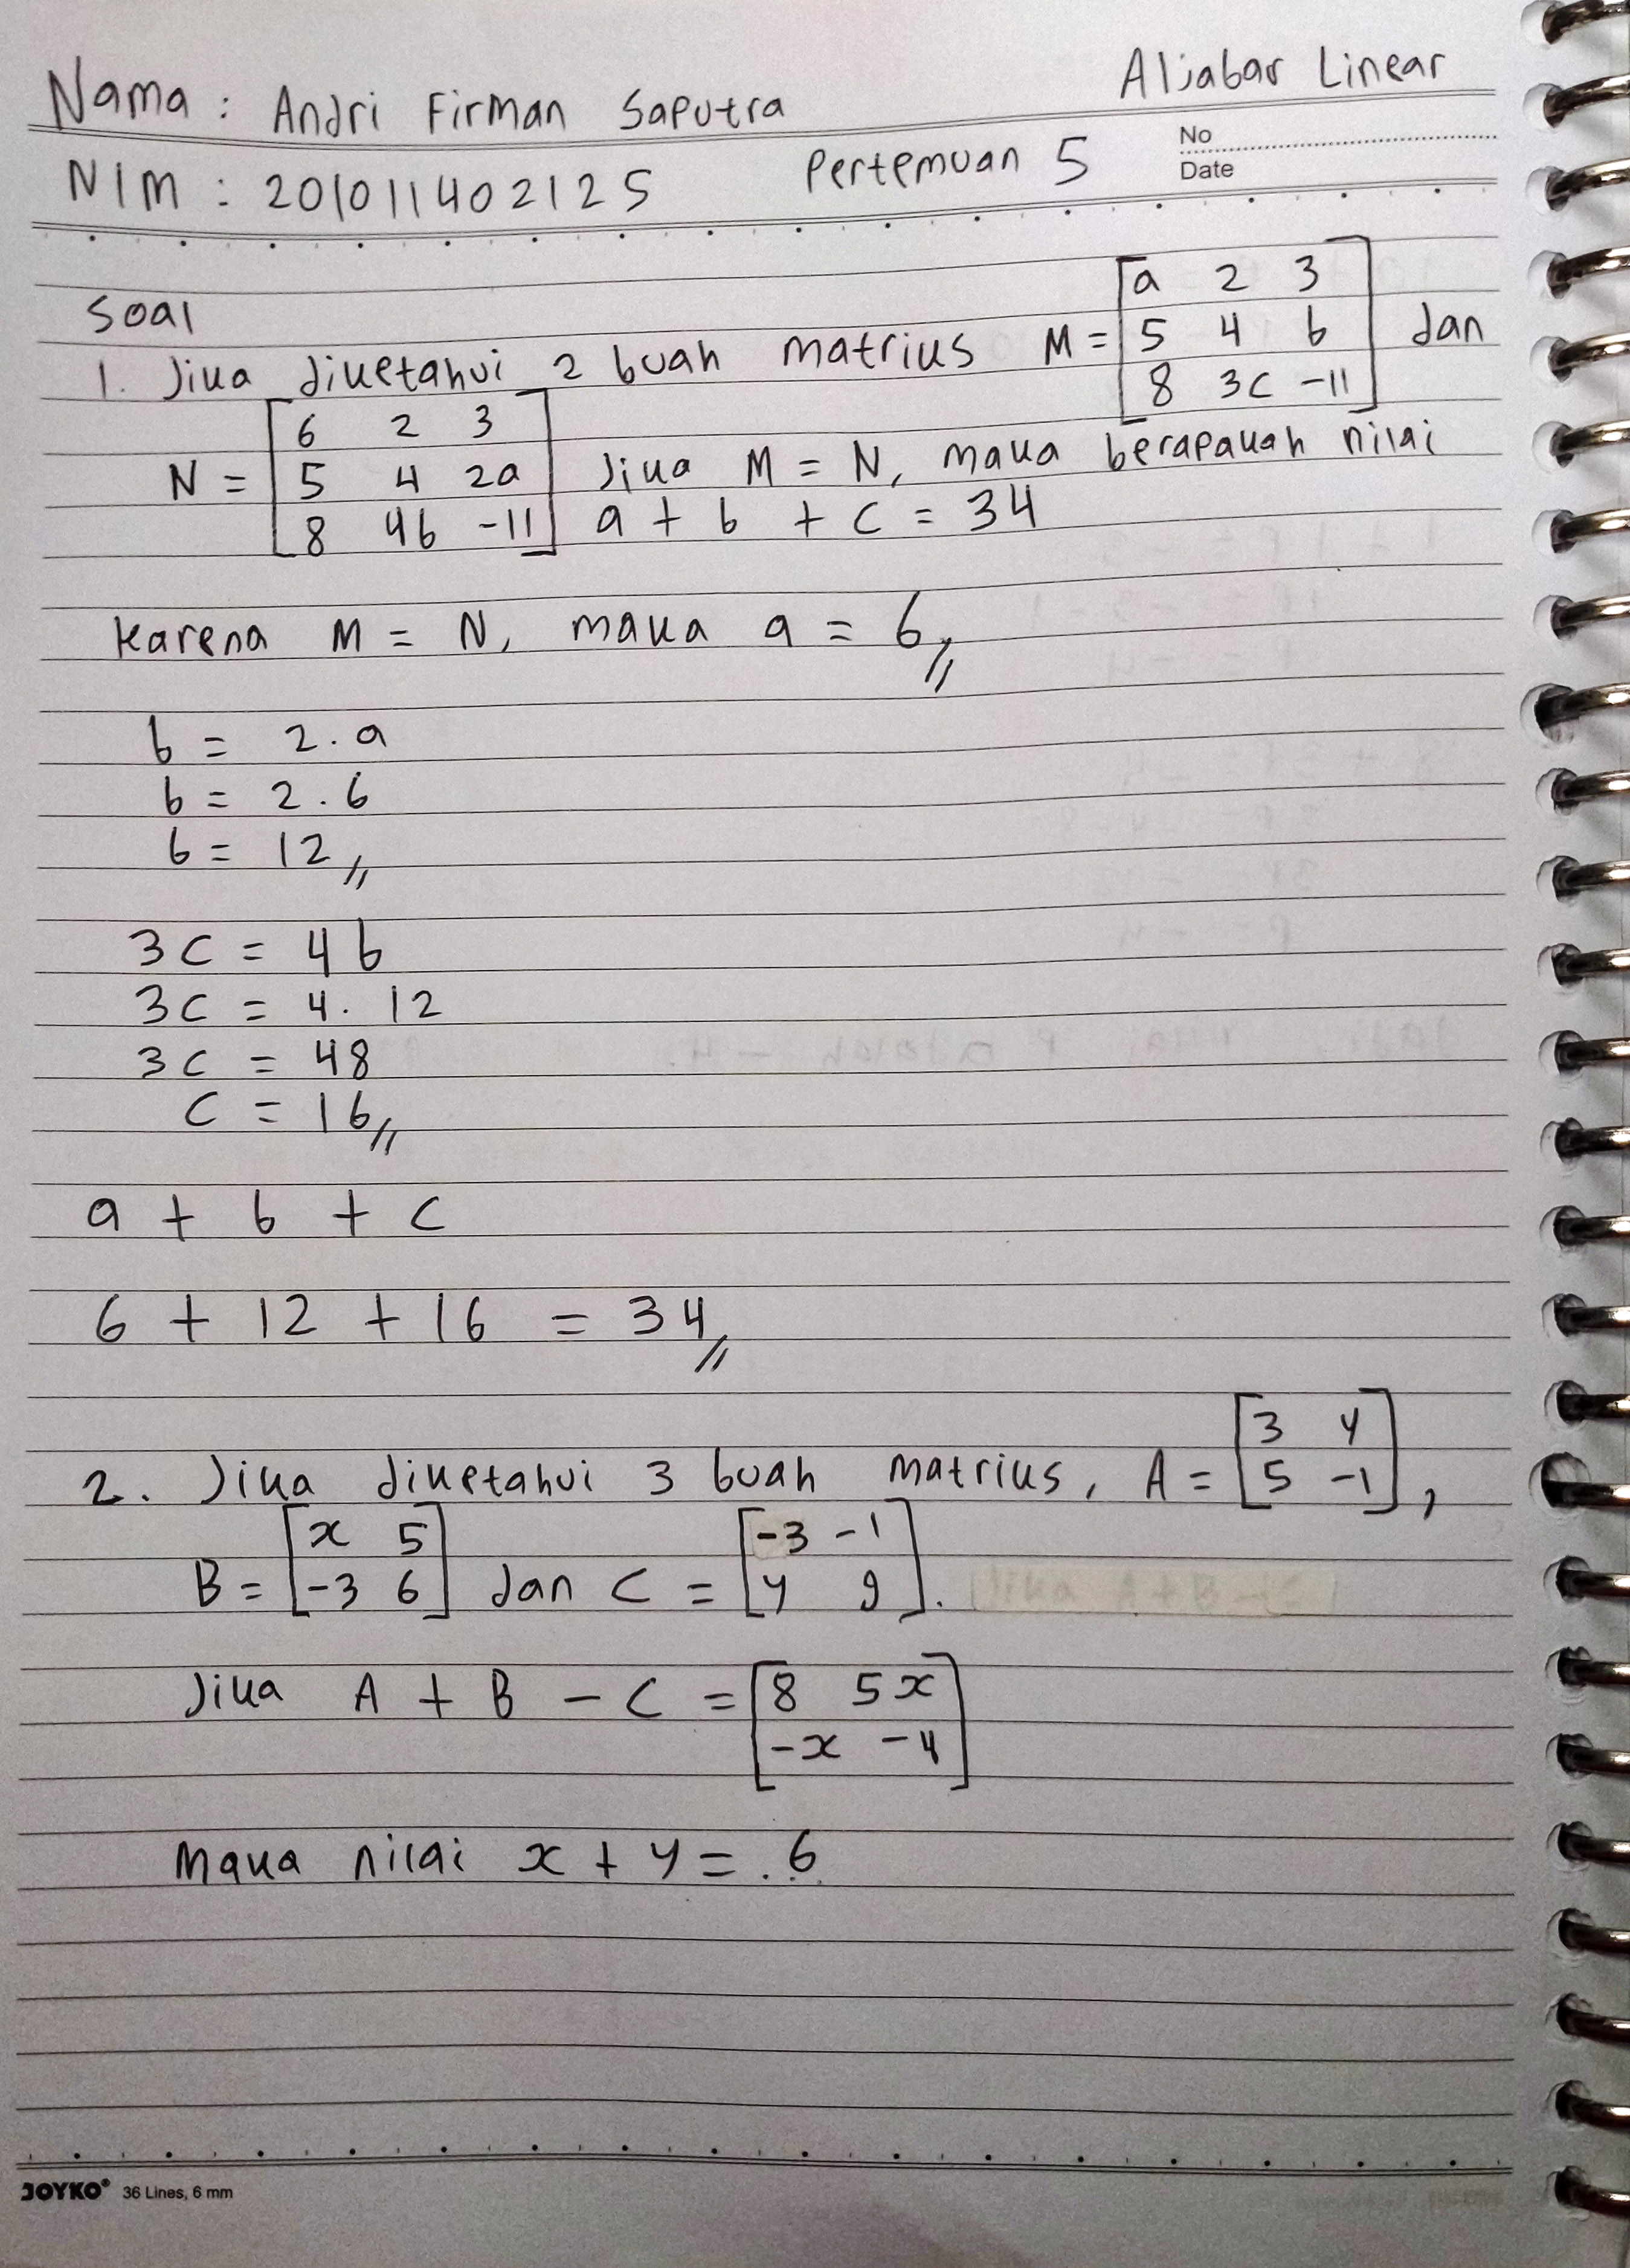 Aljabar Linear
Nama : Andri Firman Saputra
No
NIM : 201011402125 Pertemuan 5
Date
Soal
1. Jika diketahui 2 buah matriks M = [a 2 3
5 4 b
8 3c -11] dan
N = [6 2 3
5 4 2a
8 4b -11] Jika M = N, maka berapakah nilai
a + b + c = 34
Karena M = N, maka a = 6
b = 2.a
b = 2.6
b = 12
3c = 4b
3c = 4. 12
3c = 48
c = 16
a + b + c
6 + 12 + 16 = 34
2. Jika diketahui 3 buah matriks, A = [3 y
5 -1],
B = [x 5
-3 6] dan C = [-3 -1
y 9].
Jika A + B - C = [8 5x
-x -4]
Maka nilai x + y = . 6
JOYKO® 36 Lines, 6 mm